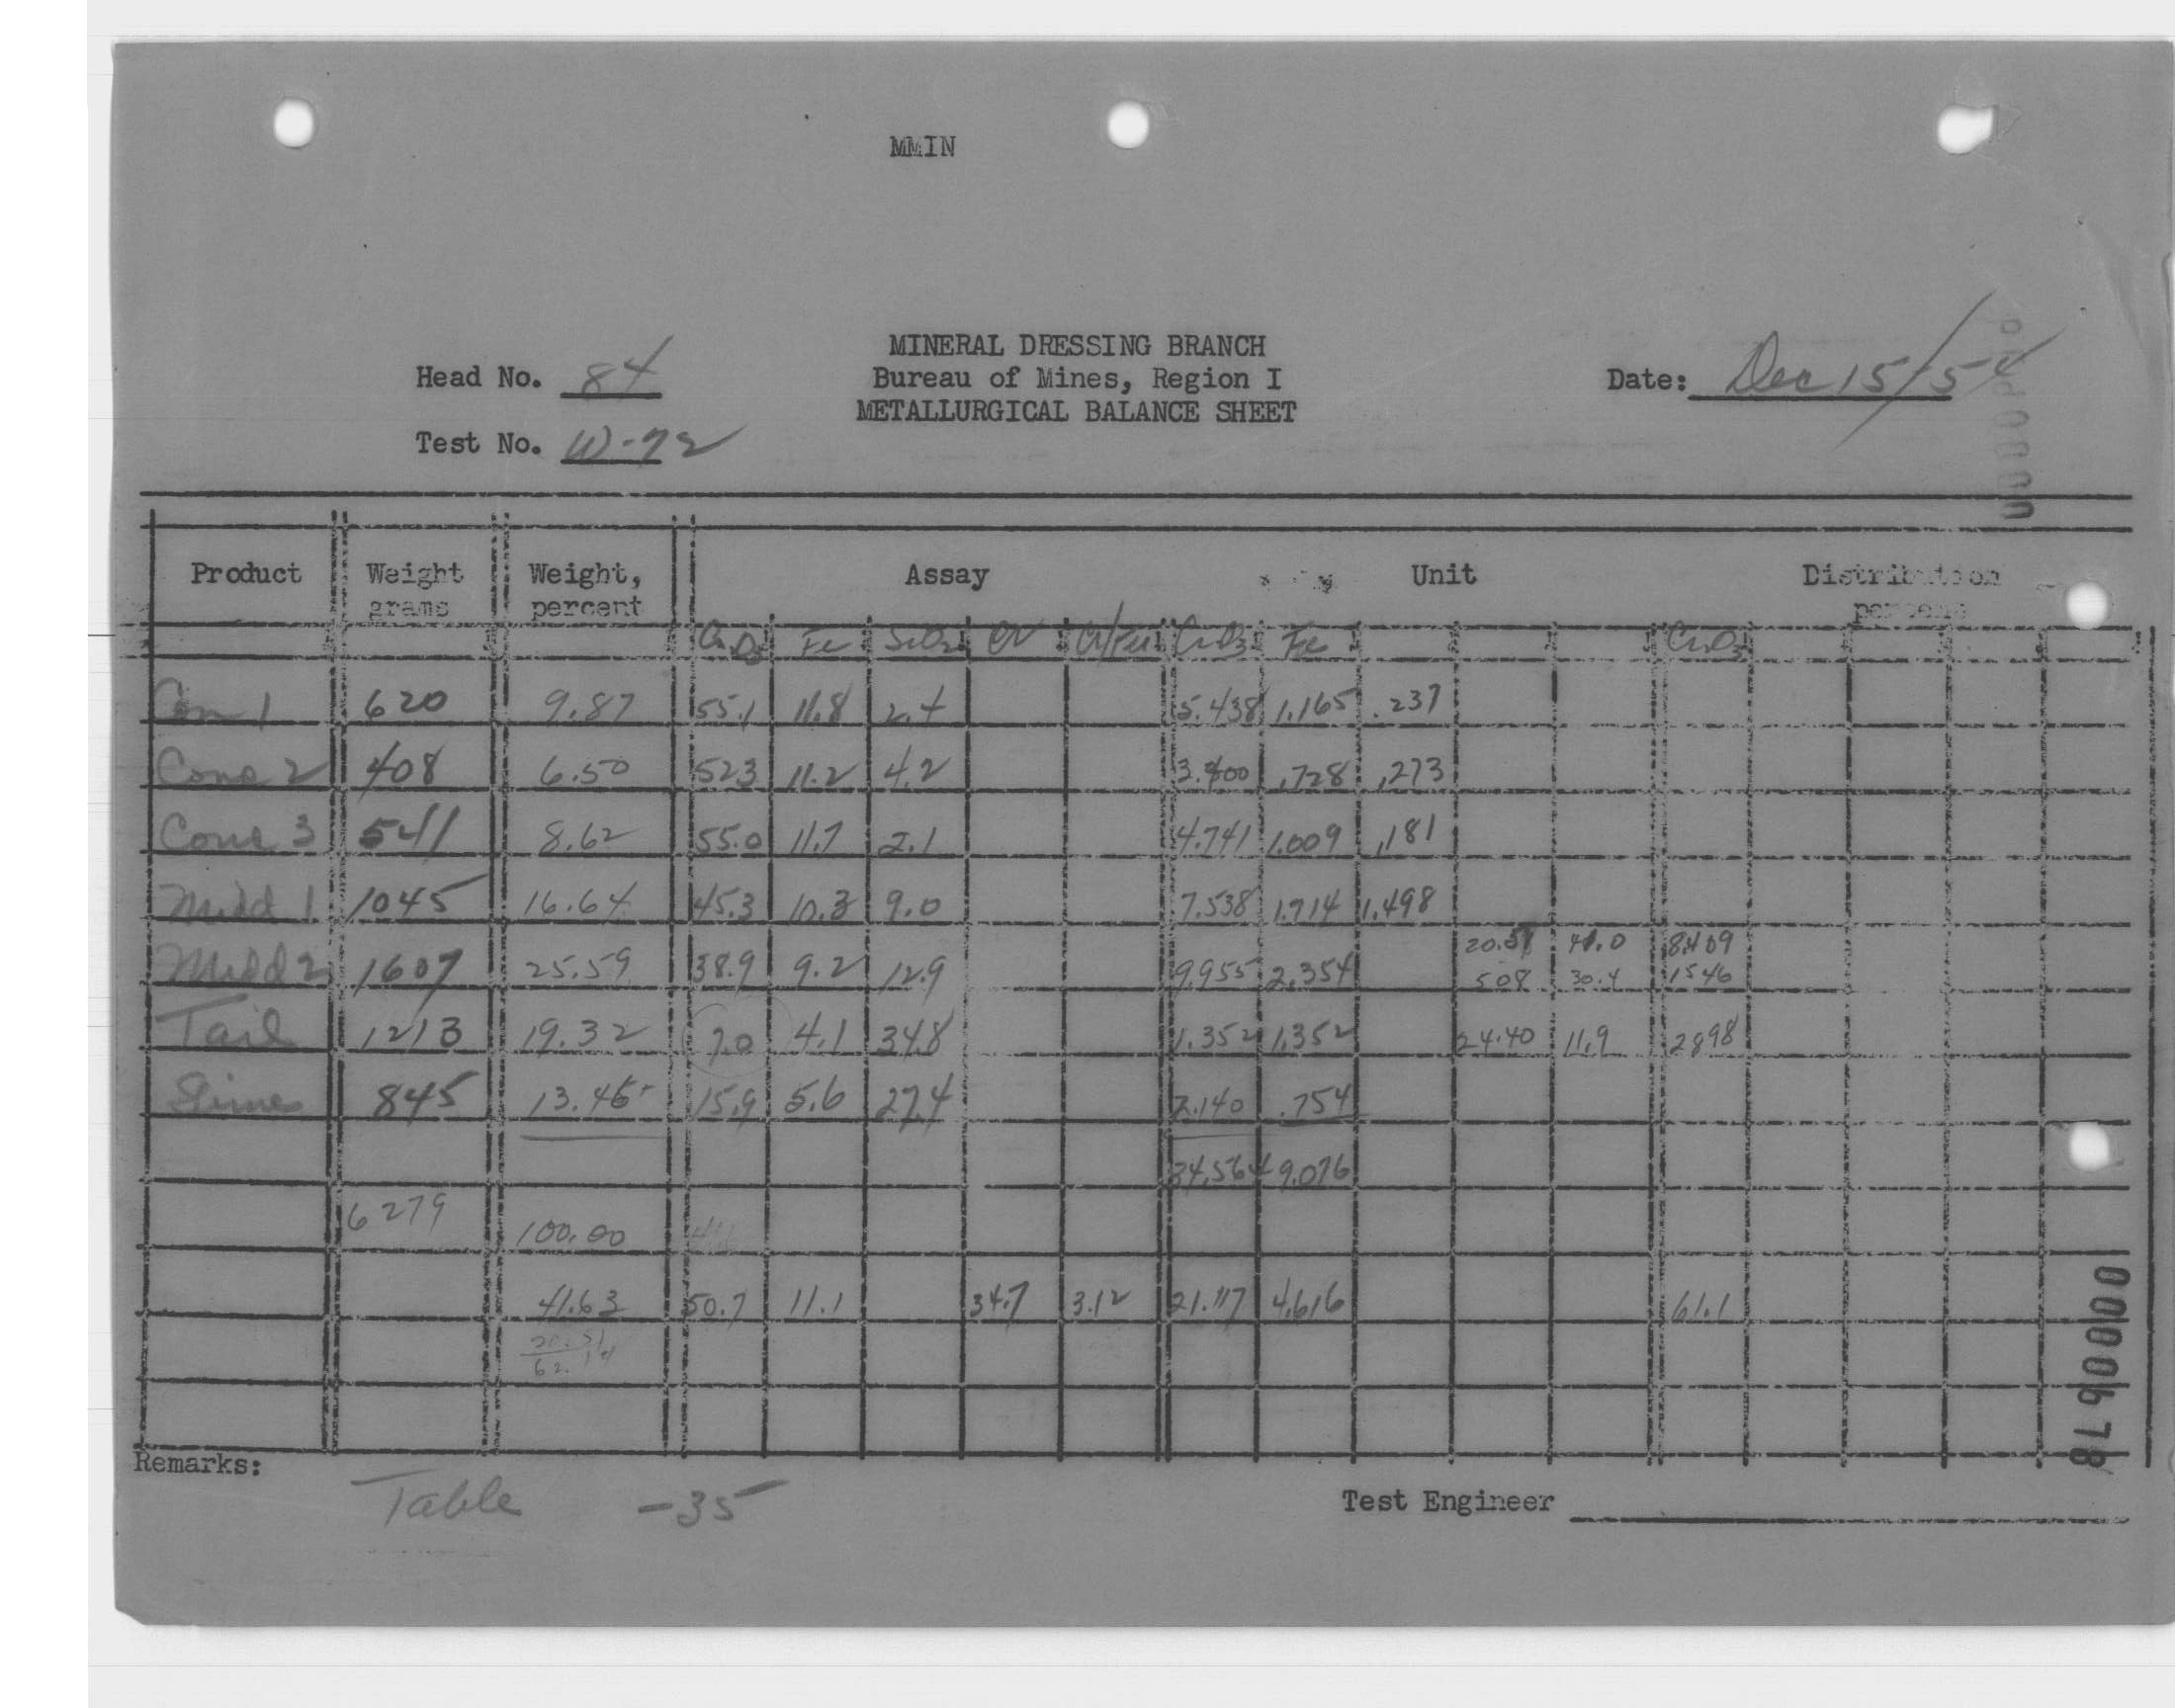 MMIN
MINERAL DRESSING BRANCH
Head No. 84 Bureau of Mines, Region I Date: Dec 15/54
METALLURGICAL BALANCE SHEET
Test No. W-72
Product Weight grams Weight, percent Assay Unit Distribution percent
Cr2O3 Fe SiO2 Cr Cr/Fe Cr2O3 Fe Cr2O3
Con 1 620 9.87 55.1 11.8 2.4 5.438 1.165 .237
Conc 2 408 6.50 52.3 11.2 4.2 3.400 .728 .273
Conc 3 541 8.62 55.0 11.7 2.1 4.741 1.009 .181
Midd 1 1045 16.64 45.3 10.3 9.0 7.538 1.714 1.498
20.51 41.0 8.409
Midd 2 1607 25.59 38.9 9.2 12.9 9.955 2.354 508 30.4 1546
Tail 1213 19.32 7.0 4.1 34.8 1.352 1.352 24.40 11.9 2898
Slimes 845 13.46 15.9 5.6 27.4 2.140 .754
34.564 9.076
6279
100.00
41.63 50.7 11.1 34.7 3.12 21.117 4.616 61.1
20.51
62.14
Remarks:
Table -35
Test Engineer
0000678